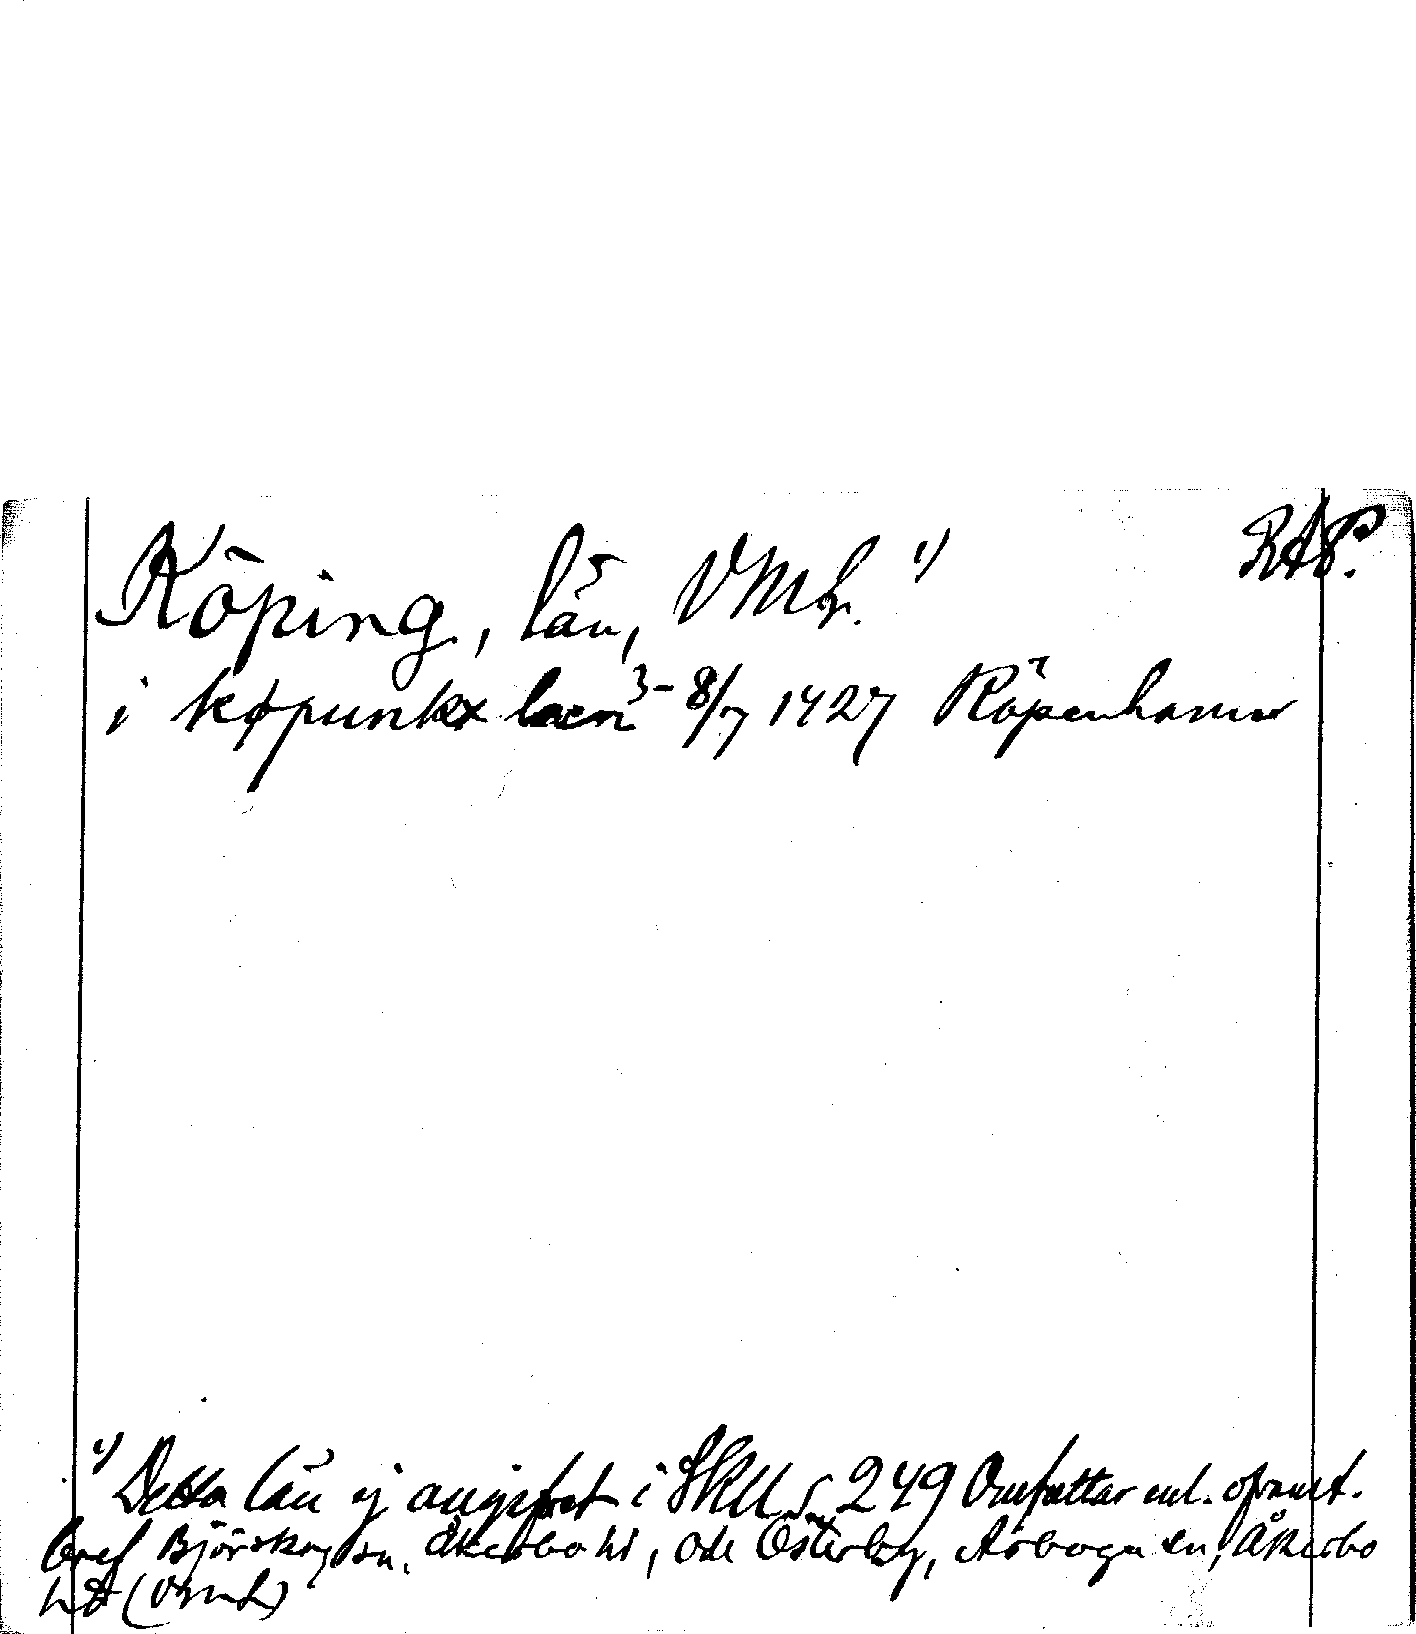 RAP.
Köping, län, VML. 1)
i køpunkx læn 3-8/7 1427 Köpenhamn
1) Detta län ej angifvet i SRU s. 249 Omfattar enl. ofvannt.
bref Björskog sn, Åkerbo hd, och Österby, Arboga sn, Åkerbo
hd (Vrml)